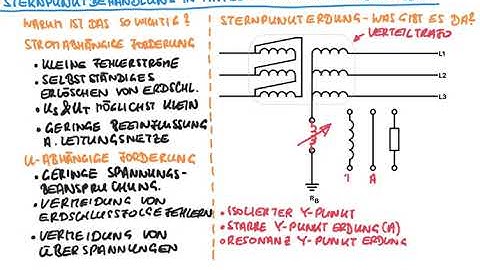 STERNPUNKTBEHANDLUNG IN
WARUM IST DAS SO WICHTIG?
STROMABHÄNGIGE FORDERUNG
• KLEINE FEHLERSTRÖME
• SELBSTSTÄNDIGES
ERLÖSCHEN VON ERDSCHL.
• US & UT MÖGLICHST KLEIN
• GERINGE BEEINFLUSSUNG
A. LEITUNGSNETZE
U-ABHÄNGIGE FORDERUNG
• GERINGE SPANNUNGS-
BEANSPRUCHUNG.
• VERMEIDUNG VON
ERDSCHLUSSFOLGEFEHLERN
• VERMEIDUNG VON
ÜBERSPANNUNGEN
STERNPUNKTERDUNG - WAS GIBT ES DA?
VERTEILTRAFO
L1
L2
L3
RB
1
A
• ISOLIERTER Y-PUNKT
• STARRE Y-PUNKT ERDUNG (A)
• RESONANZ Y-PUNKT ERDUNG